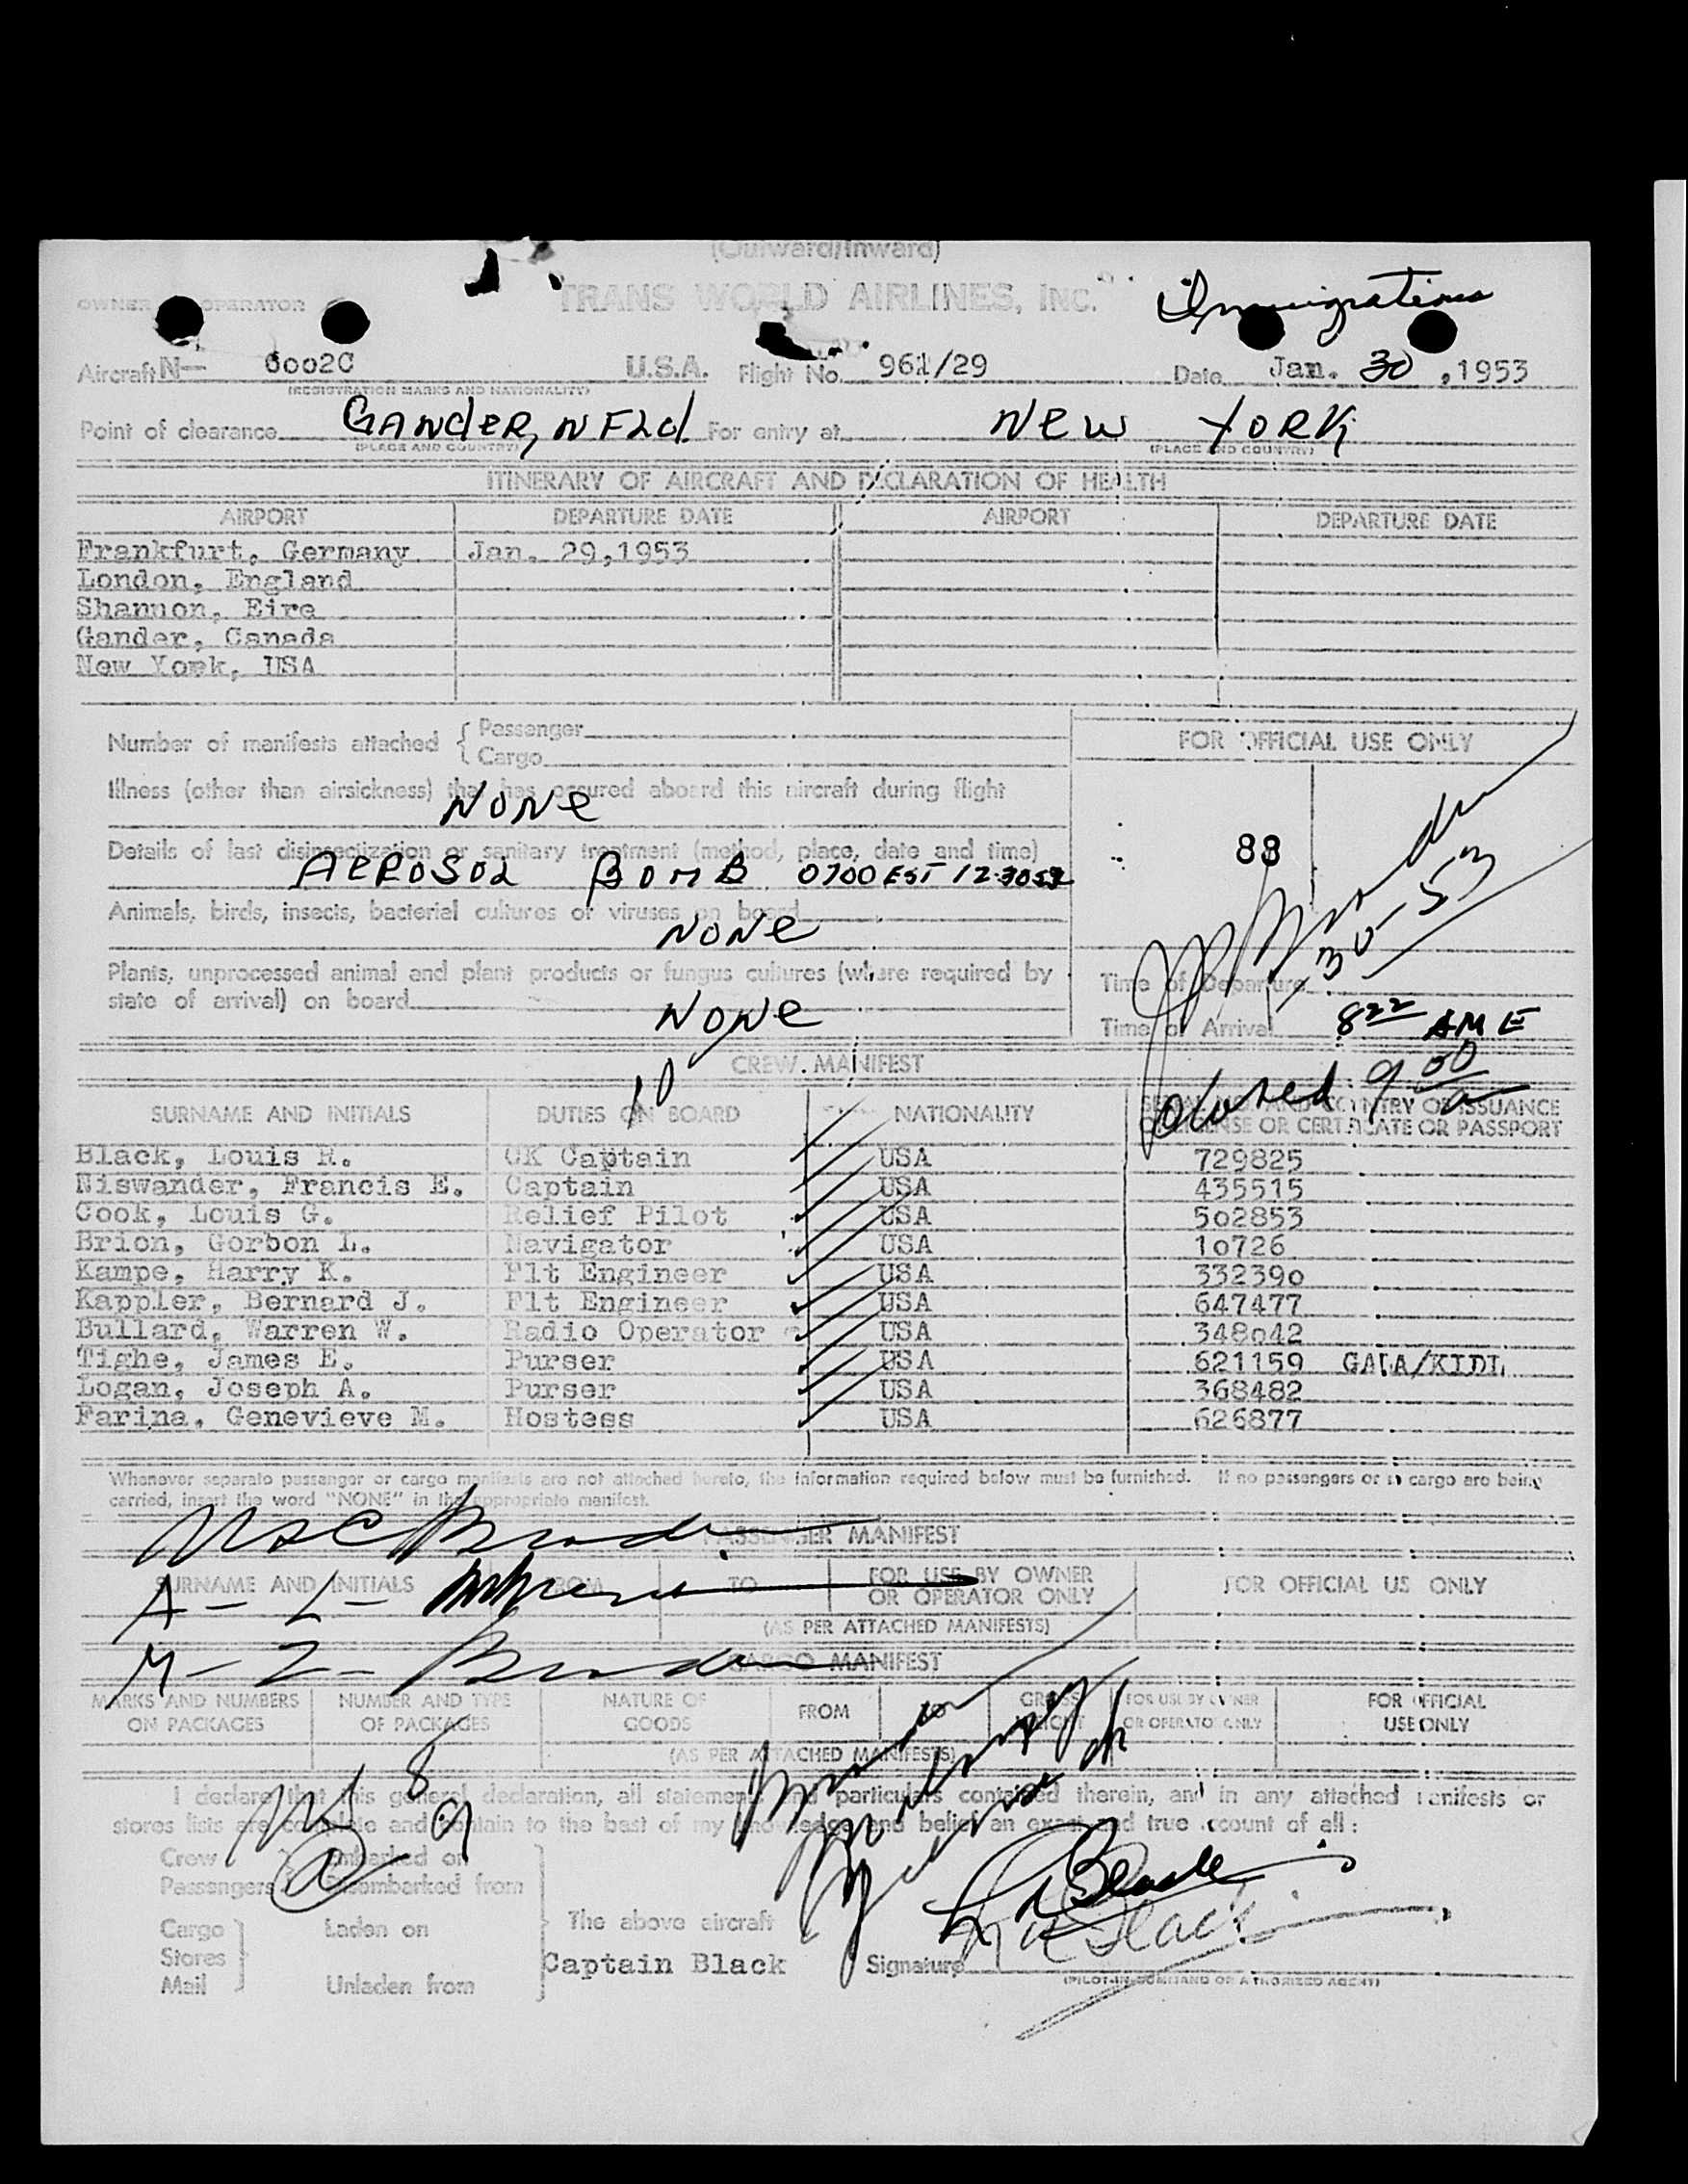 (Outward/Inward)
OWNER OPERATOR TRANS WORLD AIRLINES, INC. Immigration
Aircraft N- 6002C U.S.A. Flight No. 961/29 Date Jan. 30, 1953
(REGISTRATION MARKS AND NATIONALITY)
Point of clearance GANDER, NFLd. For entry at NEW YORK
(PLACE AND COUNTRY) (PLACE AND COUNTRY)
ITINERARY OF AIRCRAFT AND DECLARATION OF HEALTH
AIRPORT DEPARTURE DATE AIRPORT DEPARTURE DATE
Frankfurt, Germany Jan. 29,1953
London, England
Shannon, Eire
Gander, Canada
New York, USA
Number of manifests attached { Passenger
Cargo
FOR OFFICIAL USE ONLY
Illness (other than airsickness) that has occured aboard this aircraft during flight
NONE
Details of last disinsectization or sanitary treatment (method, place, date and time)
AEROSOL BOMB 0700 EST
88
Animals, birds, insects, bacterial cultures or viruses on board
NONE
1-30-53
Plants, unprocessed animal and plant products or fungus cultures (where required by
state of arrival) on board
NONE
Time of Departure
Time of Arrival 8 22 AM E
CREW MANIFEST
10
Cleared 9 00 a
SURNAME AND INITIALS DUTIES ON BOARD NATIONALITY SERIAL NO. AND COUNTRY OF ISSUANCE
OF LICENSE OR CERTIFICATE OR PASSPORT
Black, Louis R. CK Captain USA 729825
Niswander, Francis E. Captain USA 435515
Cook, Louis G. Relief Pilot USA 502853
Brion, Gorbon L. Navigator USA 10726
Kampe, Harry K. Flt Engineer USA 332390
Kappler, Bernard J. Flt Engineer USA 647477
Bullard, Warren W. Radio Operator USA 348042
Tighe, James E. Purser USA 621159 GALA/KIDL
Logan, Joseph A. Purser USA 368482
Farina, Genevieve M. Hostess USA 626877
Whenever separate passenger or cargo manifests are not attached hereto, the information required below must be furnished. If no passengers or no cargo are being
carried, insert the word "NONE" in the appropriate manifest.
PASSENGER MANIFEST
SURNAME AND INITIALS FROM TO FOR USE BY OWNER
OR OPERATOR ONLY FOR OFFICIAL USE ONLY
A - L -
(AS PER ATTACHED MANIFESTS)
M - Z -
CARGO MANIFEST
MARKS AND NUMBERS
ON PACKAGES NUMBER AND TYPE
OF PACKAGES NATURE OF
GOODS FROM TO GROSS
WEIGHT FOR USE BY OWNER
OR OPERATOR ONLY FOR OFFICIAL
USE ONLY
(AS PER ATTACHED MANIFESTS)
I declare that this general declaration, all statements and particulars contained therein, and in any attached manifests or
stores lists are complete and contain to the best of my knowledge and belief an exact and true account of all:
Crew
Passengers
Embarked on
Disembarked from
Cargo
Stores
Mail
Laden on
Unladen from
The above aircraft
Captain Black
Signature L R Black
(PILOT-IN-COMMAND OR AUTHORIZED AGENT)